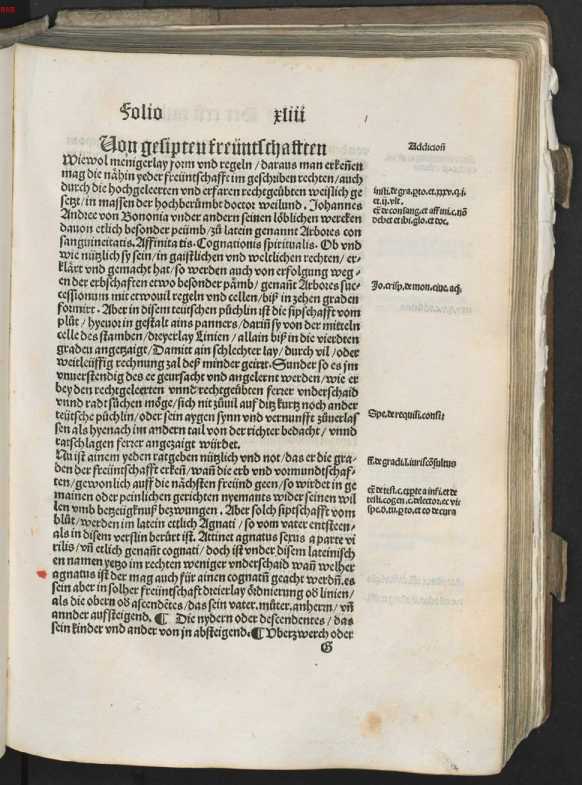 Folio xliii
Von gesipten freüntschafften
Wiewol menigerlay form vnd regeln / daraus man erkeñen
mag die nähin yeder freüntschafft im geschriben rechten / auch
durch die hochgeleerten vnd erfaren rechtgeübten weißlich ge
setzt / in massen der hochberümbt doctor weilund . Johannes
Andree von Bononia vnder andern seinen löblichen wercken
dauon etlich besonder peümb / zů latein genannt Arbores con
sanguineitatis. Affinita tis. Cognationis spiritualis. Ob vnd
wie nützlich sy sein / in gaistlichen vnd weltlichen rechten / er-
klärt vnd gemacht hat / so werden auch von erfolgung weg-
en der erbschafften etwo besonder pämb / genañt Arbores suc-
cessionum mit etwouil regeln vnd cellen / biß in zehen graden
formirt . Aber in disem teutschen püchlin ist die sipschafft vom
plůt / hyeuor in gestalt ains panners / dariñ sy von der mitteln
celle des stamben / dreyerlay Linien / allain biß in die vierdten
graden angetzaigt / Damitt ain schlechter lay / durch vil / oder
weitleüffig rechnung zal deß minder geirrt . Sunder so es im
vnuerstendig des ee geursacht vnd angelernt werden / wie er
bey den rechtgeleerten vnnd rechtgeübten ferrer vnderschaid
vnnd radt süchen möge / sich nit züuil auf ditz kurtz noch ander
teütsche püchlin / oder sein aygen synn vnd vernunfft züuerlas
sen als hyenach im andern tail von der richter bedacht / vnnd
ratschlagen ferrer angezaigt würdet.
Nu ist ainem yeden ratgeben nützlich vnd not / das er die gra-
den der freüntschafft erkeñ / wañ die erb vnd vormundtschaf-
ten / gewonlich auff die nächsten freünd geen / so wirdet in ge
mainen oder peinlichen gerichten nyemants wider seinen wil
len vmb betzeügknuß bezwungen. Aber solch siptschafft vom
blůt / werden im latein ettlich Agnati / so vom vater entsteen-
als in disem verslin berürt ist. Attinet agnatus sexus a parte vi
rilis / vñ etlich genañt cognati / doch ist vnder disem lateinisch
en namen yetzo im rechten weniger vnderschaid wañ welher
agnatus ist der mag auch für ainen cognatū geacht werdñ. es
sein aber in solher freüntschaft dreierlay ördnierung oδ linien /
als die obern oδ ascendētes / das sein vater. můter. anherrn / vñ
annder aufsteigend. ¶ Die nydern oder descendentes / das
sein kinder vnd ander von jn absteigend. ¶ Vberzwerch oder
G
Addicioñ
insti. de gra. ꝑto. et. xxxv. q. i.
et. ij. vlt.
ex̄ de consang. et affini. c. nō
debet et ibi. glo. et doc.
Jo. crisp. de mon. ciue. acf.
Spe. de requisi. consi
ff. de gradi. l. iurisconsultus
ex̄ de test. c. cepte a infi. et de
testi. cogen. c. delector. ec vir
spe. δ. tu. ꝑto. et eo de cura